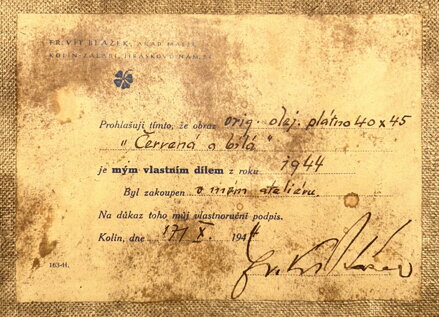 FR. VÍT BLAŽEK, AKAD. MALÍŘ
KOLÍN-ZÁLABÍ, JIRÁSKOVO NÁM.
Prohlašuji tímto, že obraz orig. olej. plátno 40x45
"Červená a bílá"
je mým vlastním dílem z roku 1944
Byl zakoupen v mém atelieru.
Na důkaz toho můj vlastnoruční podpis.
Kolín, dne 17/X. 194
163-H.